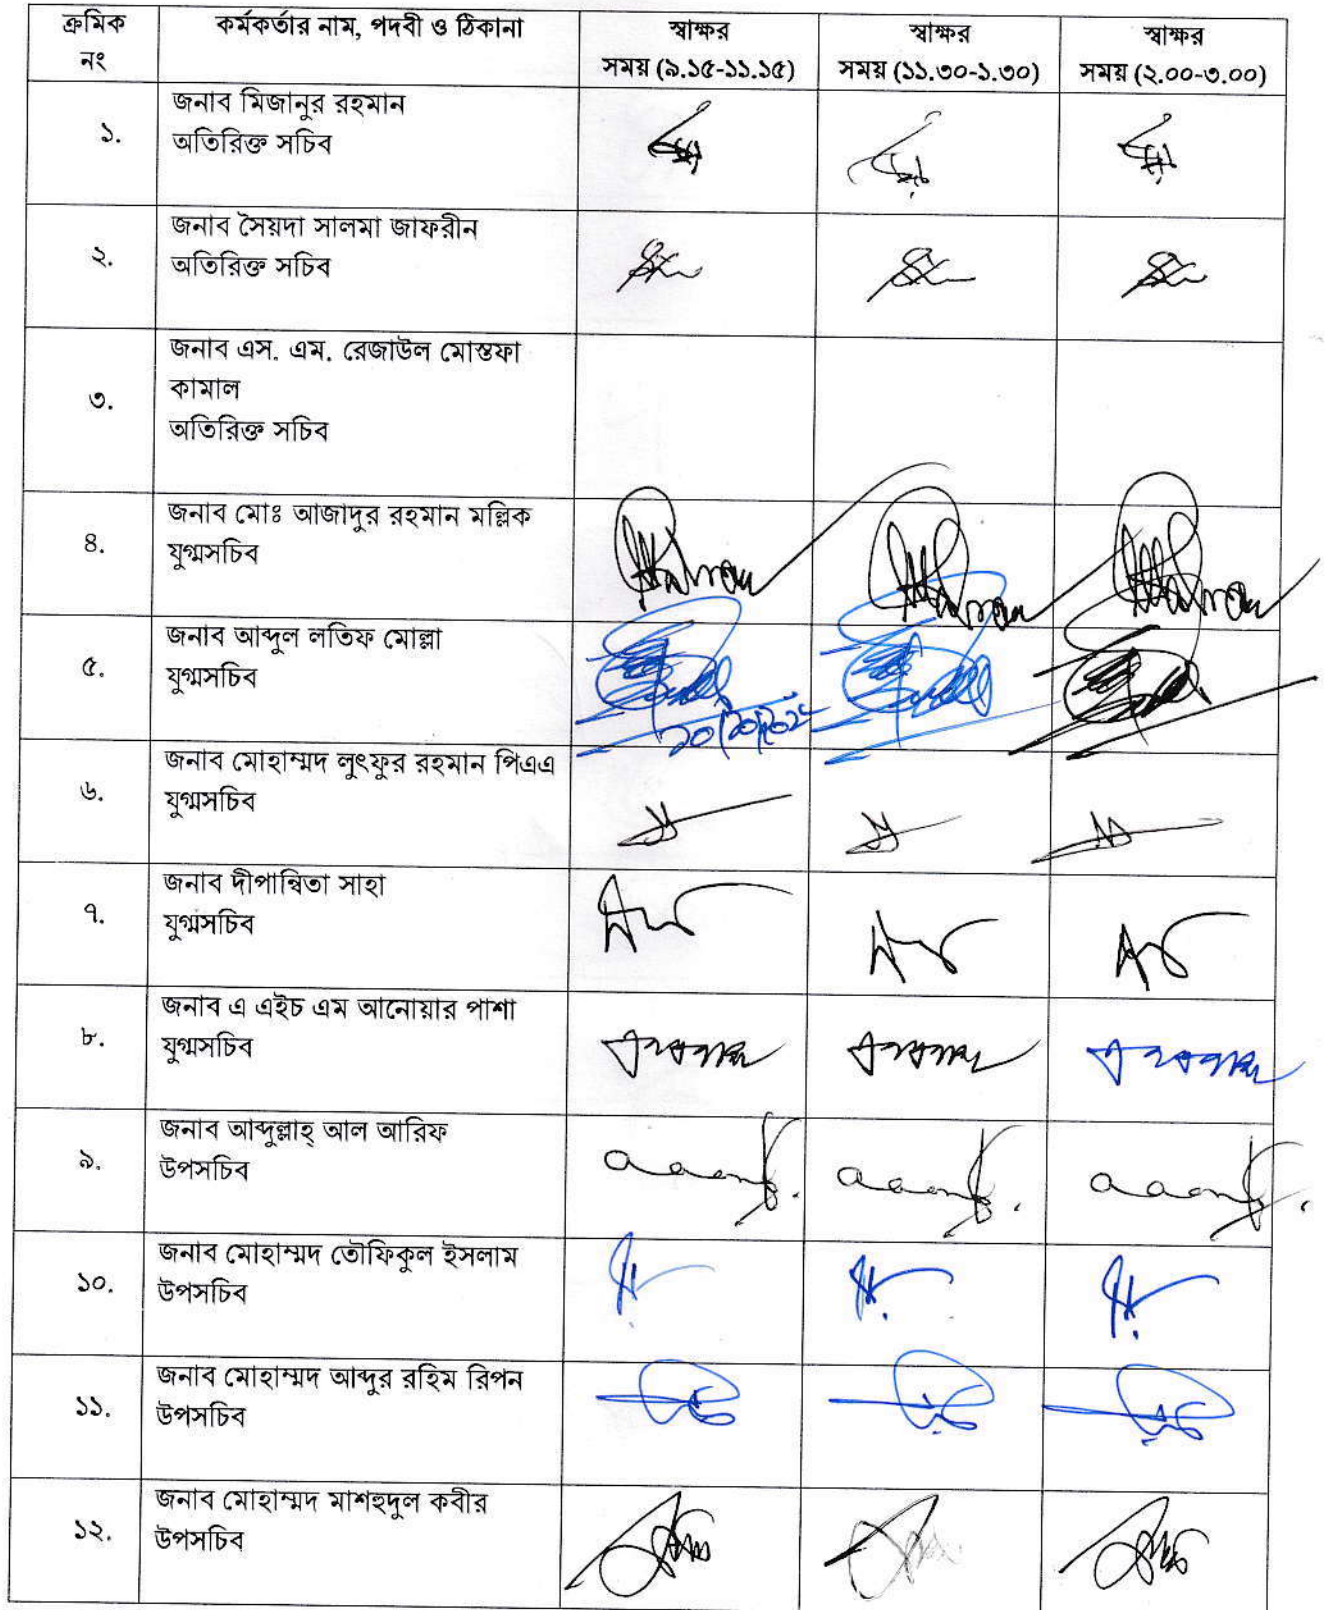 ক্রমিক নং
কর্মকর্তার নাম, পদবী ও ঠিকানা
স্বাক্ষর
সময় (৯.১৫-১১.১৫)
স্বাক্ষর
সময় (১১.৩০-১.৩০)
স্বাক্ষর
সময় (২.০০-৩.০০)
১.
জনাব মিজানুর রহমান
অতিরিক্ত সচিব
২.
জনাব সৈয়দা সালমা জাফরীন
অতিরিক্ত সচিব
৩.
জনাব এস. এম. রেজাউল মোস্তফা
কামাল
অতিরিক্ত সচিব
৪.
জনাব মোঃ আজাদুর রহমান মল্লিক
যুগ্মসচিব
৫.
জনাব আব্দুল লতিফ মোল্লা
যুগ্মসচিব
৬.
জনাব মোহাম্মদ লুৎফুর রহমান পিএএ
যুগ্মসচিব
৭.
জনাব দীপান্বিতা সাহা
যুগ্মসচিব
৮.
জনাব এ এইচ এম আনোয়ার পাশা
যুগ্মসচিব
৯.
জনাব আব্দুল্লাহ্ আল আরিফ
উপসচিব
১০.
জনাব মোহাম্মদ তৌফিকুল ইসলাম
উপসচিব
১১.
জনাব মোহাম্মদ আব্দুর রহিম রিপন
উপসচিব
১২.
জনাব মোহাম্মদ মাশহুদুল কবীর
উপসচিব